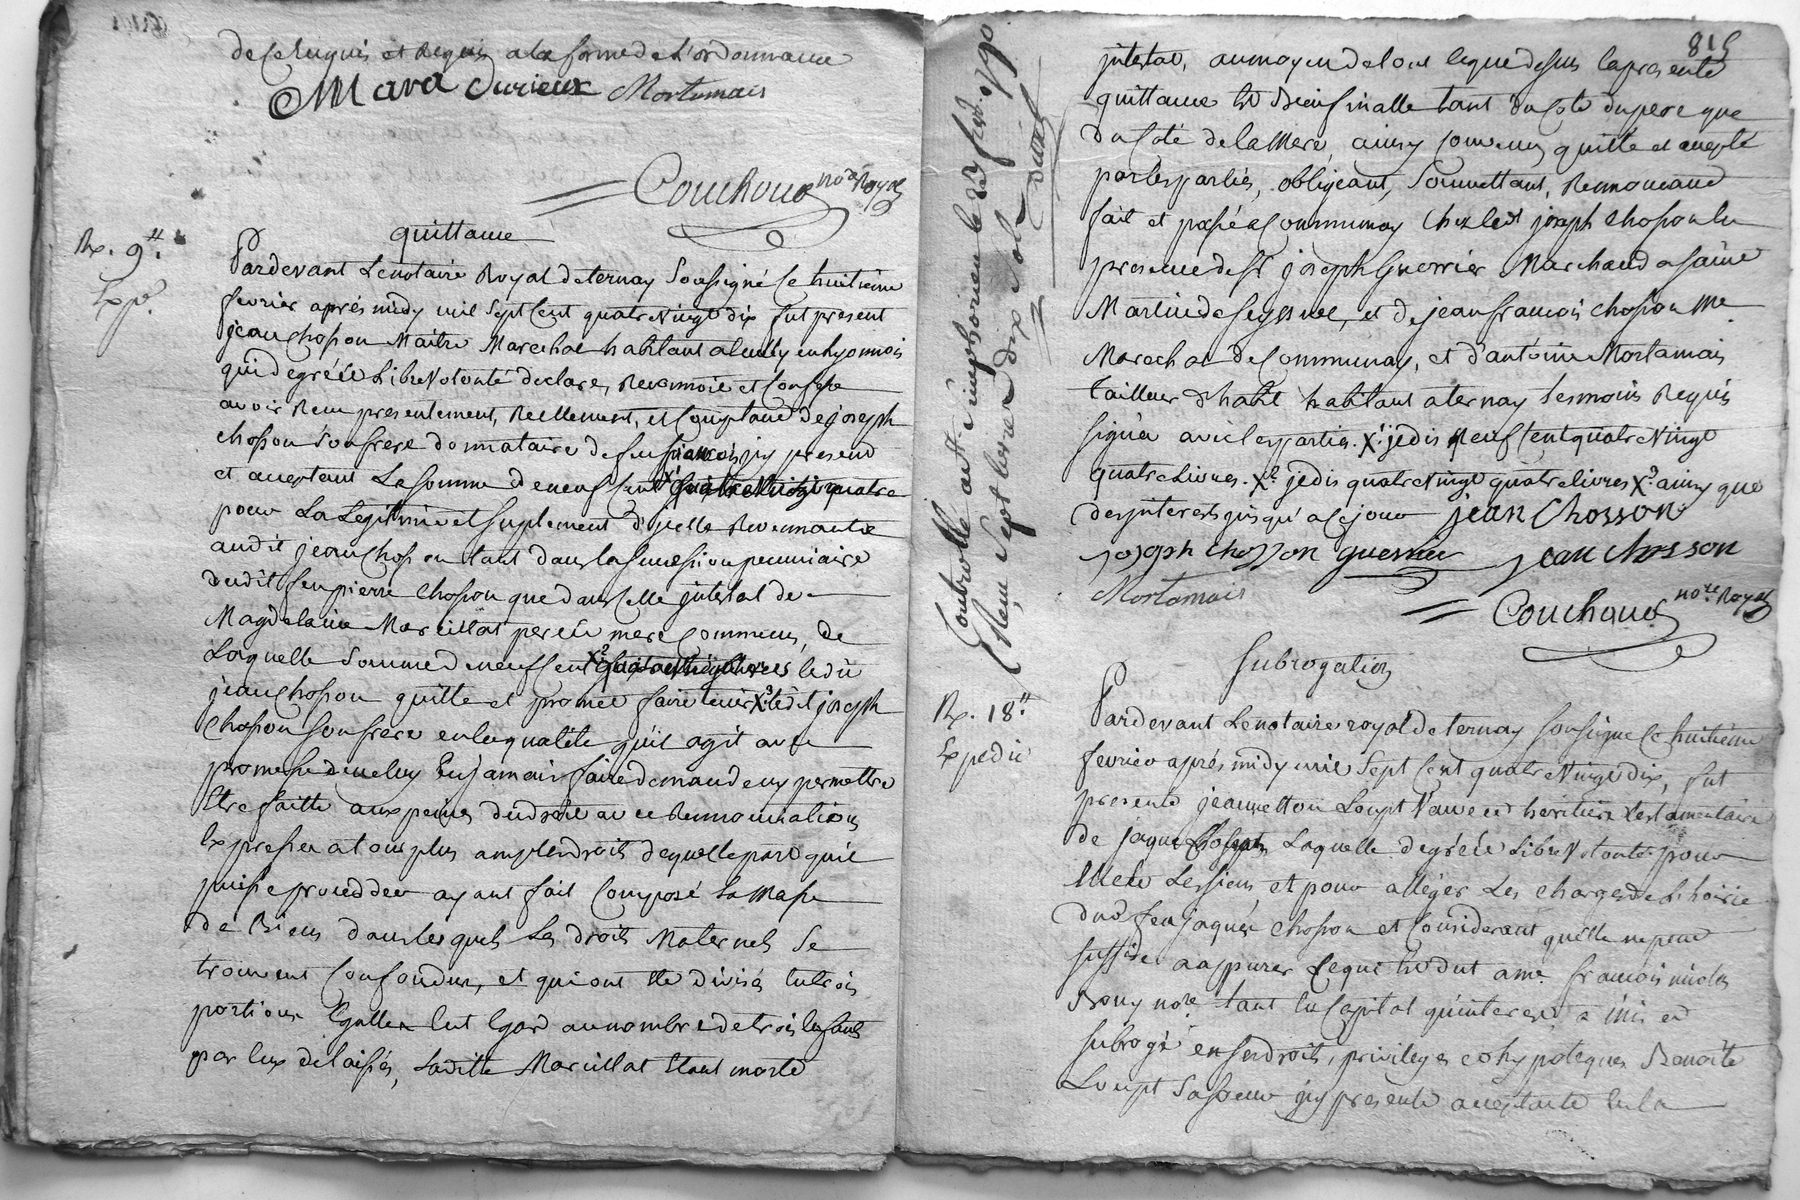 de ce enquis et Requis a la forme de l'ordonnance
Mara Curieux Mortamais
Couchoud nore Royal
quittance
Rx. 9#.
Exp.
Pardevant Le notaire Royal de ternay Soussigné Ce huitieme
fevrier aprés midy mil Sept Cent quatre Vingt dix fut present
jean Chosson Maitre Marechal habitant a en Lyonnois
qui de gré et Libre Volonté declare, Reconnoit et Confesse
avoir Receu presentement, Réellement, et Comptant de joseph
chosson Son frere donnataire de feu jcy present
et acceptant La Somme de neuf Cent quatre
pour La Legitime et Suplement d'jcelle Revenant
audit jean Chosson tant dans la Succession pecuniaire
dudit feu pierre Chosson que dans Celle jntestat de
Magdelaine Marcillat pere et mere Communs, de
Laquelle Somme de neuf Cent X2 ledit
jean Chosson quitte et promet faire tenir X3 ledit joseph
Chosson Son frere en la qualité qu'il agit avec
promesse de ne luy En jamais faire demande ny permettre
Etre faitte aux peines de droit avec Renonciations
Expresses a tous plus amples droits de quelle part qu'il
puisse procedder ayant fait Composé La Masse
de Biens dans lesquels Les droits Maternels Se
trouvent Confondus, et qui ont Eté divisés en trois
portions Egalles Eut Egard au nombre de trois Enfants
par Eux delaissés, Laditte Marcillat Etant morte
815
jntestat, au moyen de tout ce que dessus la presente
quittance Est Bien finalle tant du Coté du pere que
du Coté de la Mere, ainsy Convenu, quitté et accepté
par les parties, obligeant, Soumettant, Renonceant
fait et passé a Communay Chez ledt joseph Chosson En
presence de Sr joseph Guerrier Marchand a Saint
Martin de Seyssuel, et de jean francois chosson Me
Marechal de Communay, et d'antoine Mortamais
tailleur d'habit habitant a ternay temoins Requis
Signés avec les parties. X1 jedis neuf Cent quatre Vingt
quatre Livres. X2 jedis quatre Vingt quatre livres X3 ainsy que
des jnterets jusqu'a Ce jour jean Chosson
joseph chosson guerrier jean chosson
Mortamais
Couchoud nore Royal
Controllé a St Simphorien le 23 fevr. 1790
Receu Sept livres dix Sols
Subrogation
Rx. 18#.
Expedié
Pardevant Le notaire royal de ternay Soussigné Ce huitieme
fevrier aprés midy mil Sept Cent quatre Vingt dix, fut
presente jeannetton Loupt Veuve et heritiere testamentaire
de jaque Chosson Laquelle de gré et Libre Volonté pour
Elle et Les siens et pour alléger Les charges de L'hoirie
dud. feu jaques Chosson et Considerant qu'elle ne peut
Suffire a appurer Ce qui Est dut a me francois nicolas
Bouy nore tant En Capital qu'interets a mis et
Subrogé en Ses droits, privileges et hypoteques Benoite
Loupt Sa Soeur jcy presente acceptante En la